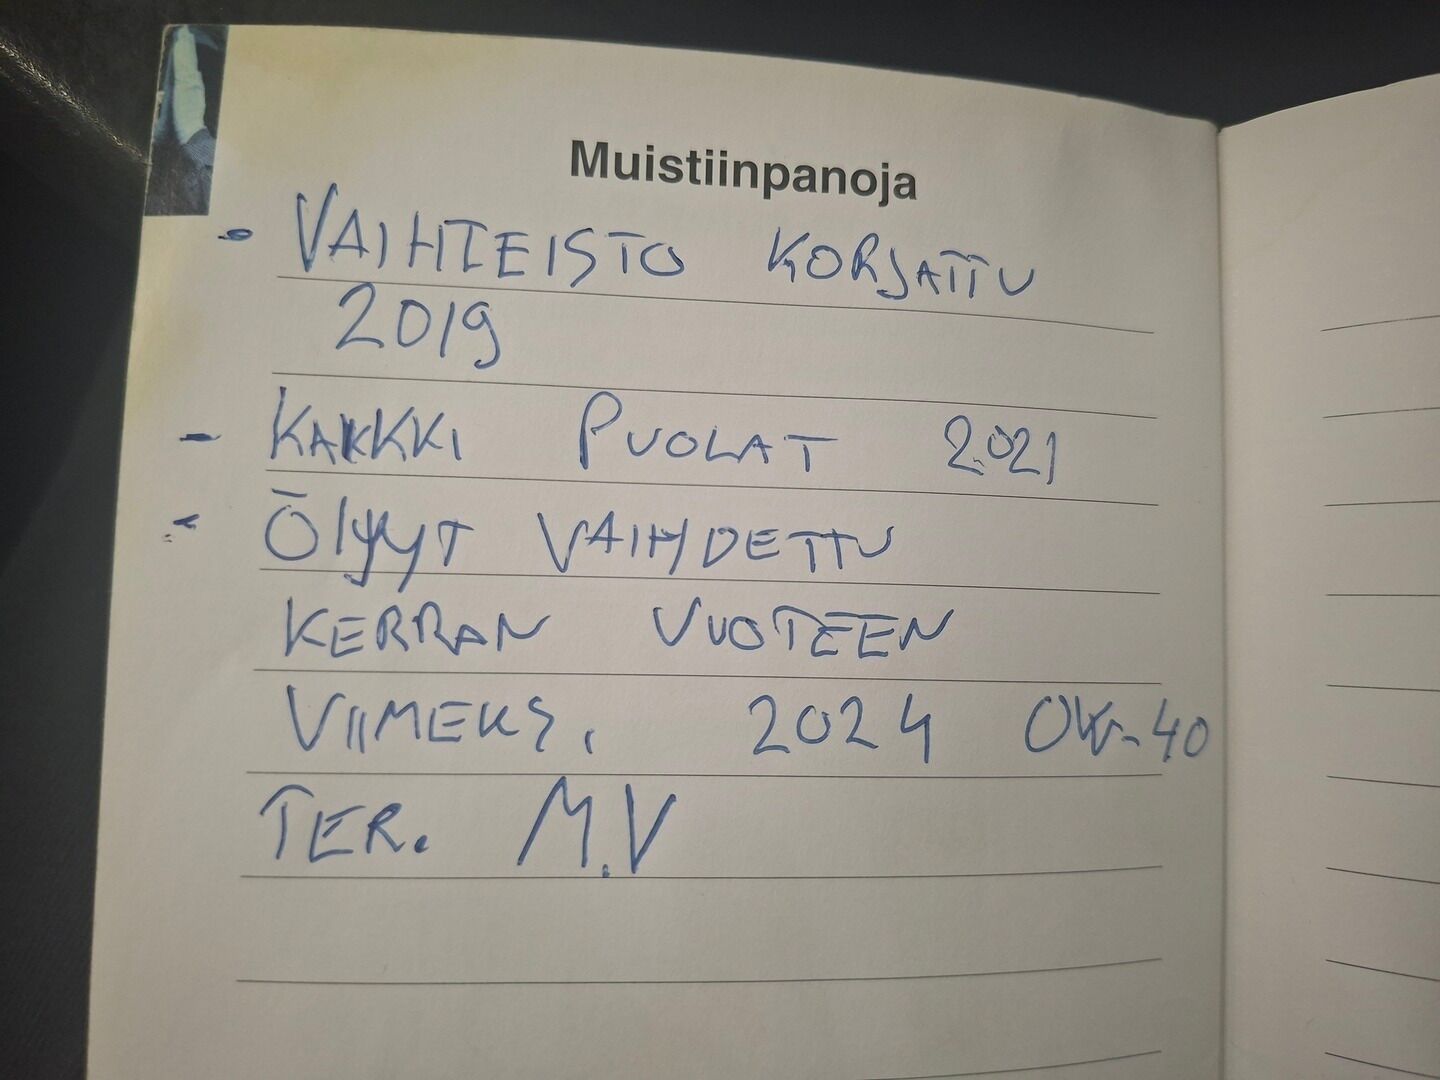 Muistiinpanoja
• VAIHTEISTO KORJATTU
2019
- KAKKKI PUOLAT 2021
- ÖlyyT VAIHDETTU
KERRAN VUOTEEN
VIIMEKS. 2024 OW-40
TER. M.V